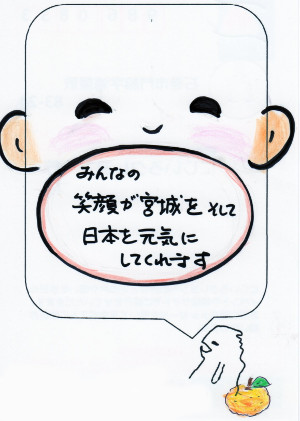 みんなの
笑顔が宮城を そして
日本を元気に
してくれます